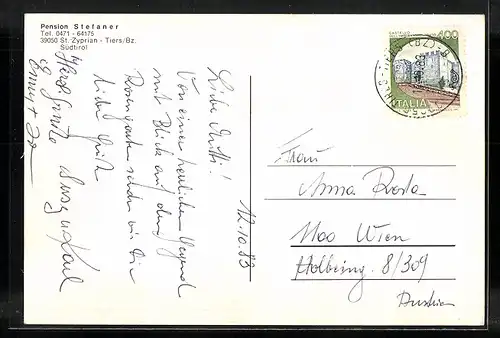 Pension Stefaner
Tel. 0471 - 64175
39050 St. Zyprian - Tiers/Bz.
Südtirol
400
ITALIA
12.10.83
Liebe Mutti!
Von einer herrlichen Gegend
mit Blick auf den
Rosengarten senden wir Dir
liebe Grüße
Herzl. Grüße
Frau
Anna
1100 Wien
Holbeing. 8/309
Austria